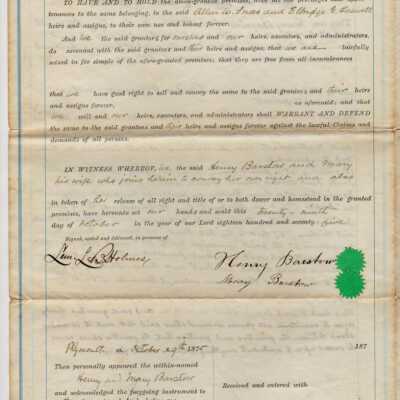 TO HAVE AND TO HOLD the afore-granted premises, with all the privileges and appur-
tenances to the same belonging, to the said Allen
heirs and assigns, to their own use and behoof forever.
And we the said grantors for ourselves and our heirs, executors, and administrators,
do covenant with the said grantees and their heirs and assigns, that we are lawfully
seized in fee simple of the afore-granted premises; that they are free from all incumbrances
that we have good right to sell and convey the same to the said grantees and their heirs
and assigns forever, as aforesaid; and that
we will and our heirs, executors, and administrators shall WARRANT AND DEFEND
the same to the said grantees and their heirs and assigns forever against the lawful claims and
demands of all persons.
IN WITNESS WHEREOF, we, the said Henry Barstow and Mary
his wife who joins herein to convey her own right and also
in token of her release of all right and title of or to both dower and homestead in the granted
premises, have hereunto set our hands and seals this twenty-ninth
day of October in the year of our Lord eighteen hundred and seventy-five
Signed, sealed and delivered, in presence of
Holmes
Henry Barstow
Mary Barstow
Plymouth, October 29th 1875
187
Then personally appeared the within-named
Henry and Mary Barstow
and acknowledged the foregoing instrument to
Received and entered with